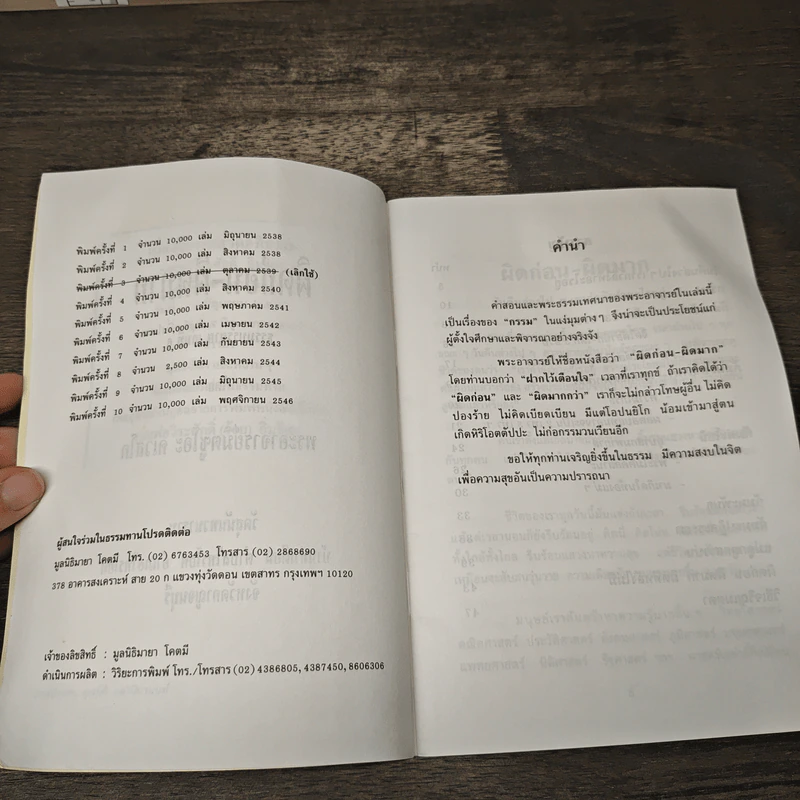 พิมพ์ครั้งที่ 1 จำนวน 10,000 เล่ม มิถุนายน 2538
พิมพ์ครั้งที่ 2 จำนวน 10,000 เล่ม สิงหาคม 2538
พิมพ์ครั้งที่ 3 จำนวน 10,000 เล่ม ตุลาคม 2539 (เลิกใช้)
พิมพ์ครั้งที่ 4 จำนวน 10,000 เล่ม สิงหาคม 2540
พิมพ์ครั้งที่ 5 จำนวน 10,000 เล่ม พฤษภาคม 2541
พิมพ์ครั้งที่ 6 จำนวน 10,000 เล่ม เมษายน 2542
พิมพ์ครั้งที่ 7 จำนวน 10,000 เล่ม กันยายน 2543
พิมพ์ครั้งที่ 8 จำนวน 2,500 เล่ม สิงหาคม 2544
พิมพ์ครั้งที่ 9 จำนวน 10,000 เล่ม มิถุนายน 2545
พิมพ์ครั้งที่ 10 จำนวน 10,000 เล่ม พฤศจิกายน 2546
ผู้สนใจร่วมในธรรมทานโปรดติดต่อ
มูลนิธิมายา โคตมี โทร. (02) 6763453 โทรสาร (02) 2868690
378 อาคารสงเคราะห์ สาย 20 ก แขวงทุ่งวัดดอน เขตสาทร กรุงเทพฯ 10120
เจ้าของลิขสิทธิ์ : มูลนิธิมายา โคตมี
ดำเนินการผลิต : วิริยะการพิมพ์ โทร./โทรสาร (02) 4386805, 4387450, 8606306
คำนำ
คำสอนและพระธรรมเทศนาของพระอาจารย์ในเล่มนี้
เป็นเรื่องของ "กรรม" ในแง่มุมต่างๆ จึงน่าจะเป็นประโยชน์แก่
ผู้ตั้งใจศึกษาและพิจารณาอย่างจริงจัง
พระอาจารย์ให้ชื่อหนังสือว่า "ผิดก่อน-ผิดมาก"
โดยท่านบอกว่า "ฝากไว้เตือนใจ" เวลาที่เราทุกข์ ถ้าเราคิดได้ว่า
"ผิดก่อน" และ "ผิดมากกว่า" เราก็จะไม่กล่าวโทษผู้อื่น ไม่คิด
ปองร้าย ไม่คิดเบียดเบียน มีแต่โอปนยิโก น้อมเข้ามาสู่ตน
เกิดหิริโอตตัปปะ ไม่ก่อกรรมวนเวียนอีก
ขอให้ทุกท่านเจริญยิ่งขึ้นในธรรม มีความสงบในจิต
เพื่อความสุขอันเป็นความปรารถนา